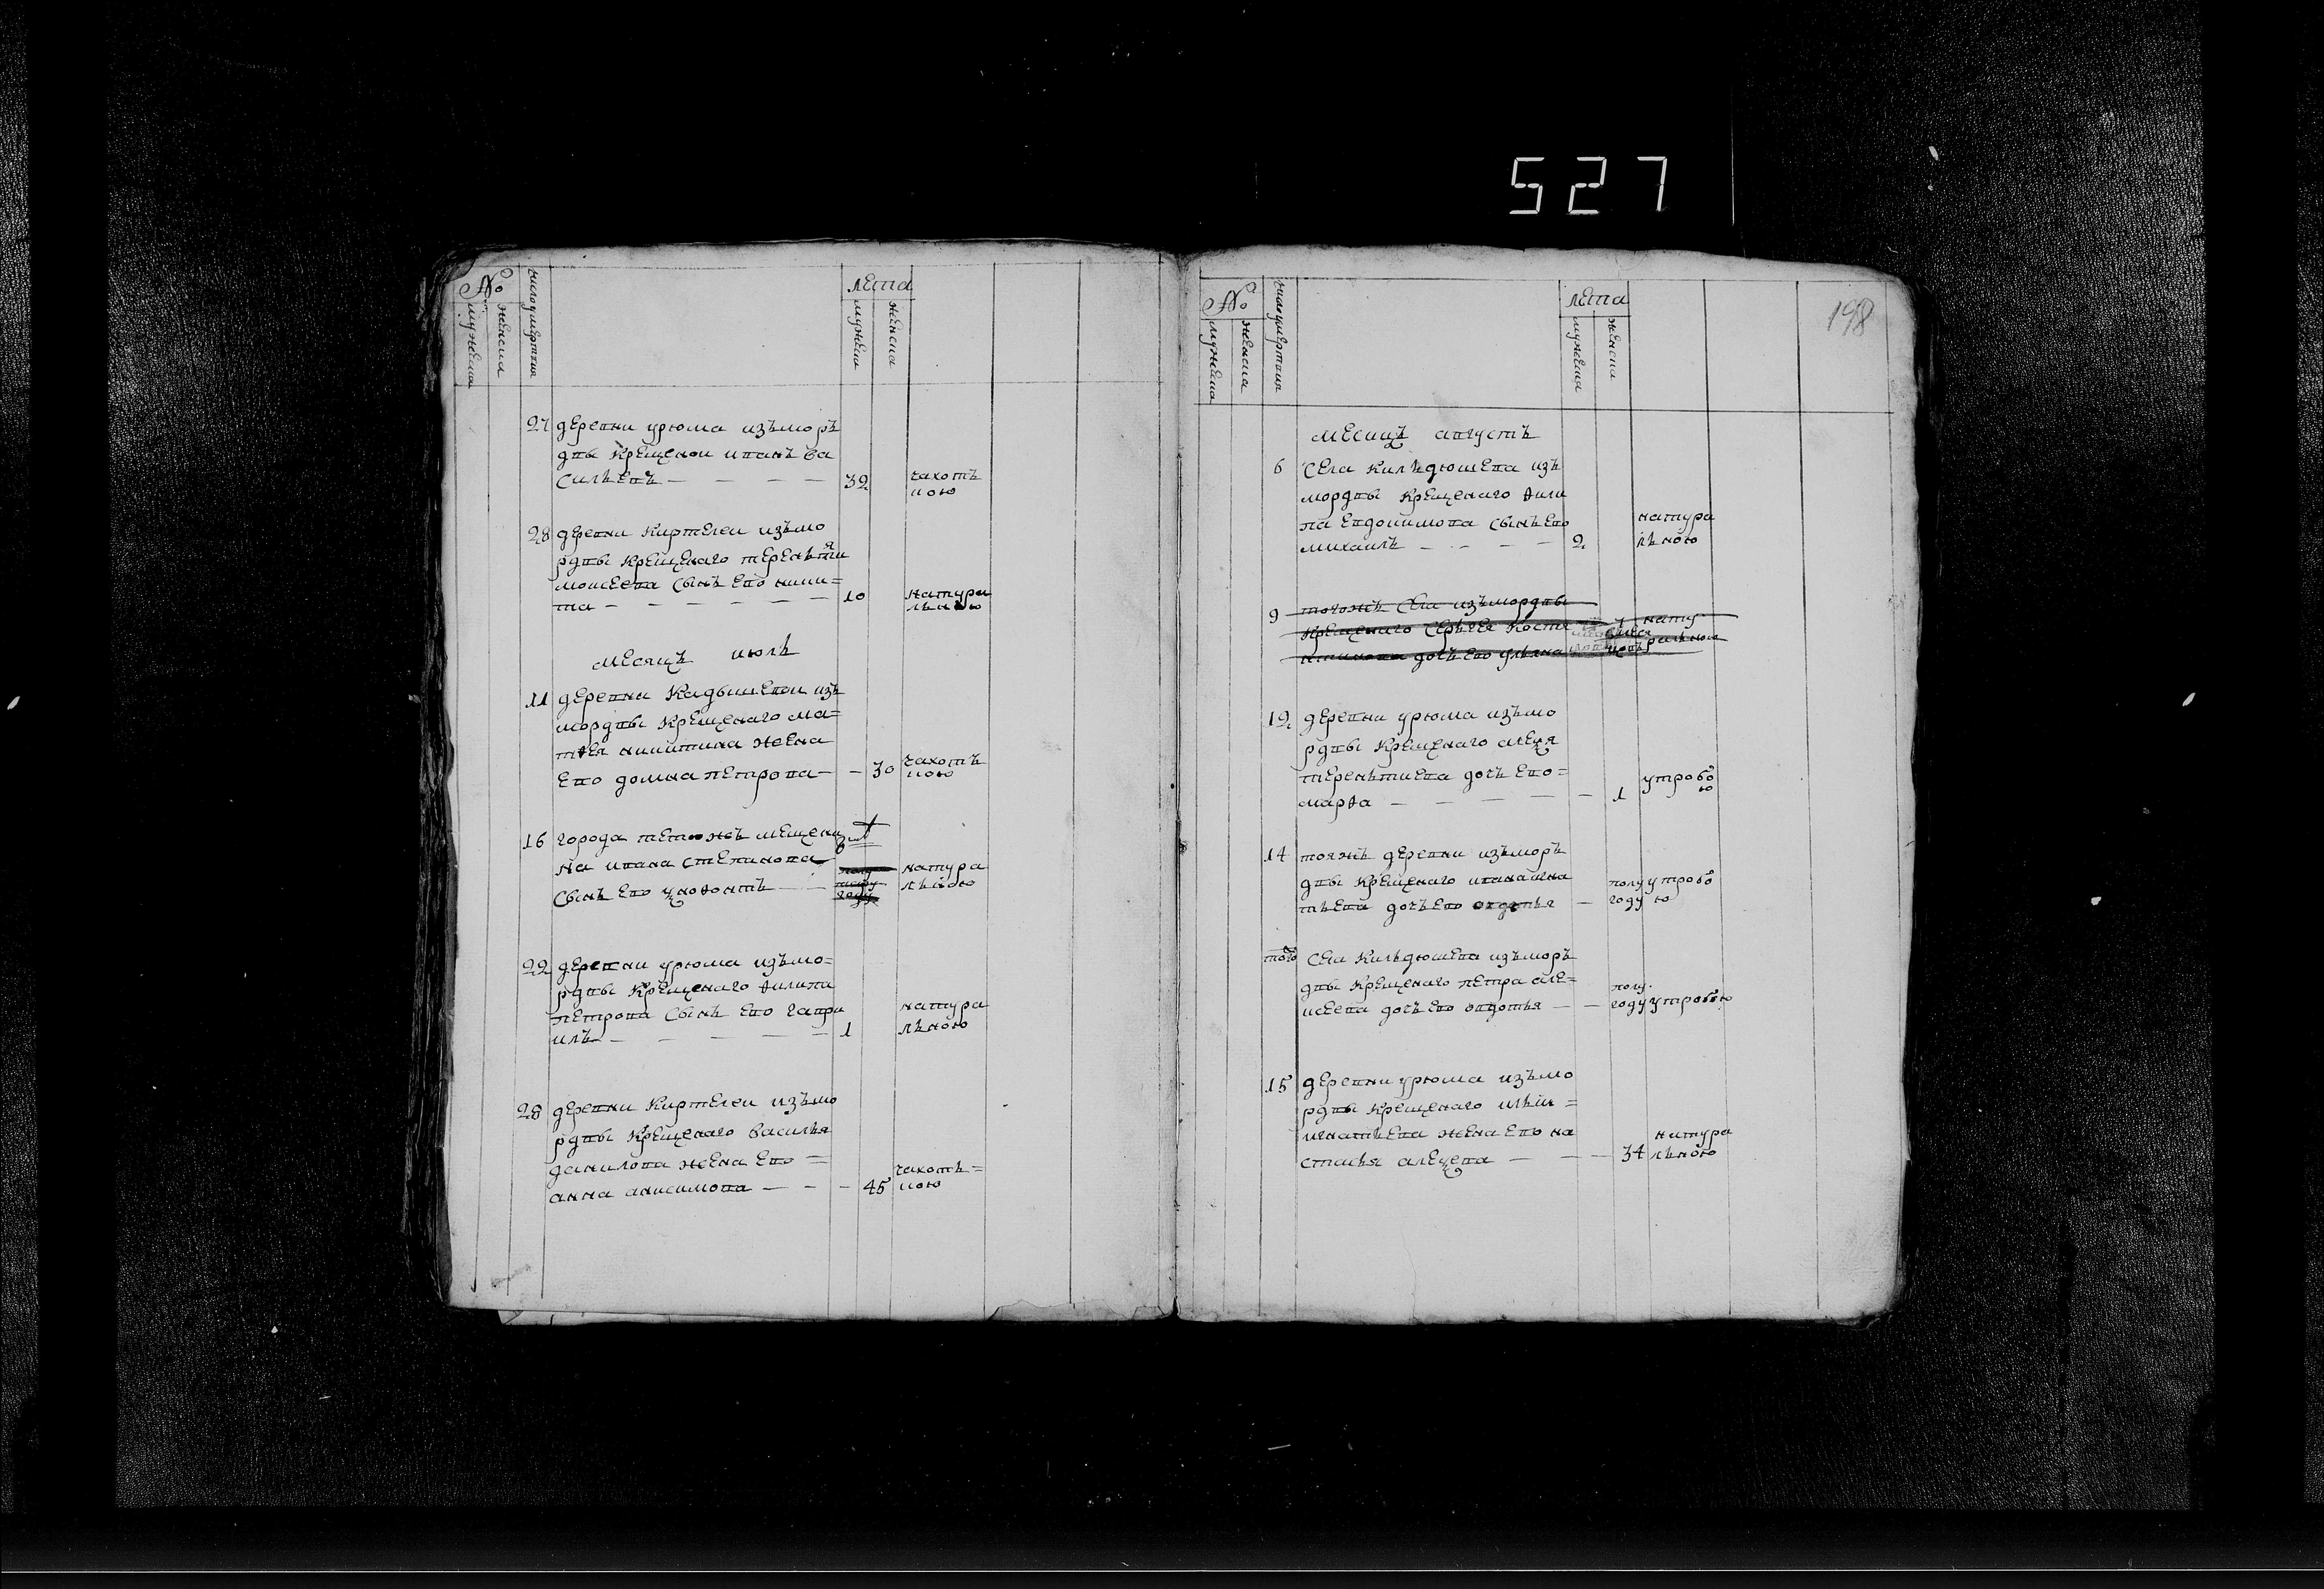 527
№
мужеска
женска
число умертвия
лета
мужеска
женска
27 деревни урюма изъ моръ
двы крещеной иванъ ва
сильевъ — — — — 32 чахоть
кою
28 деревни киртелеи изъ мо
рдвы крещенаго терентия
моисеева сынъ ево ники=
та — — — — — — 10 натура
льною
месяцъ июль
11 деревни кадышевои изъ
мордвы крещенаго ма=
твея никитина жена
ево домна петрова — — 30 чахоть
кою
16 города тетюжъ мещени
на ивана степанова
сынъ ево натура
льною
22 деревни урюма изъ мо=
рдвы крещенаго филипа
петрова сынъ ево гаври
илъ — — — — — 1 натура
льною
28 деревни киртелеи изъ мо
рдвы крещенаго василья
данилова жена ево =
анна анисимова — — — 45 чахоть=
кою
198
№
мужеска
женска
число умертвия
лета
мужеска
женска
месяцъ августъ
6 села кильдюшева изъ
мордвы крещенаго фили
па евдокимова сынъ ево
михаилъ — — — — 2 натура
льною
9 тогожъ села изъ мордвы
крещенаго сергея костя нату
нтинова дочь ево ульяна ральною
12 деревни урюма изъ мо
рдвы крещенаго алеѯя
терентиева дочь ево=
марфа — — — — — 1 утробо
ю
14 тояжъ деревни изъ моръ
двы крещенаго ивана игна
тьева дочь ево овдотья — полу году утробо
ю
того села кильдюшева изъ моръ
двы крещенаго петра але=
исеева дочь ево овдотья — — полу
году утробою
15 деревни урюма изъ мо
рдвы крещенаго ильи =
игнатьева жена ево на
стасья алеѯева — — — 34 натура
льною